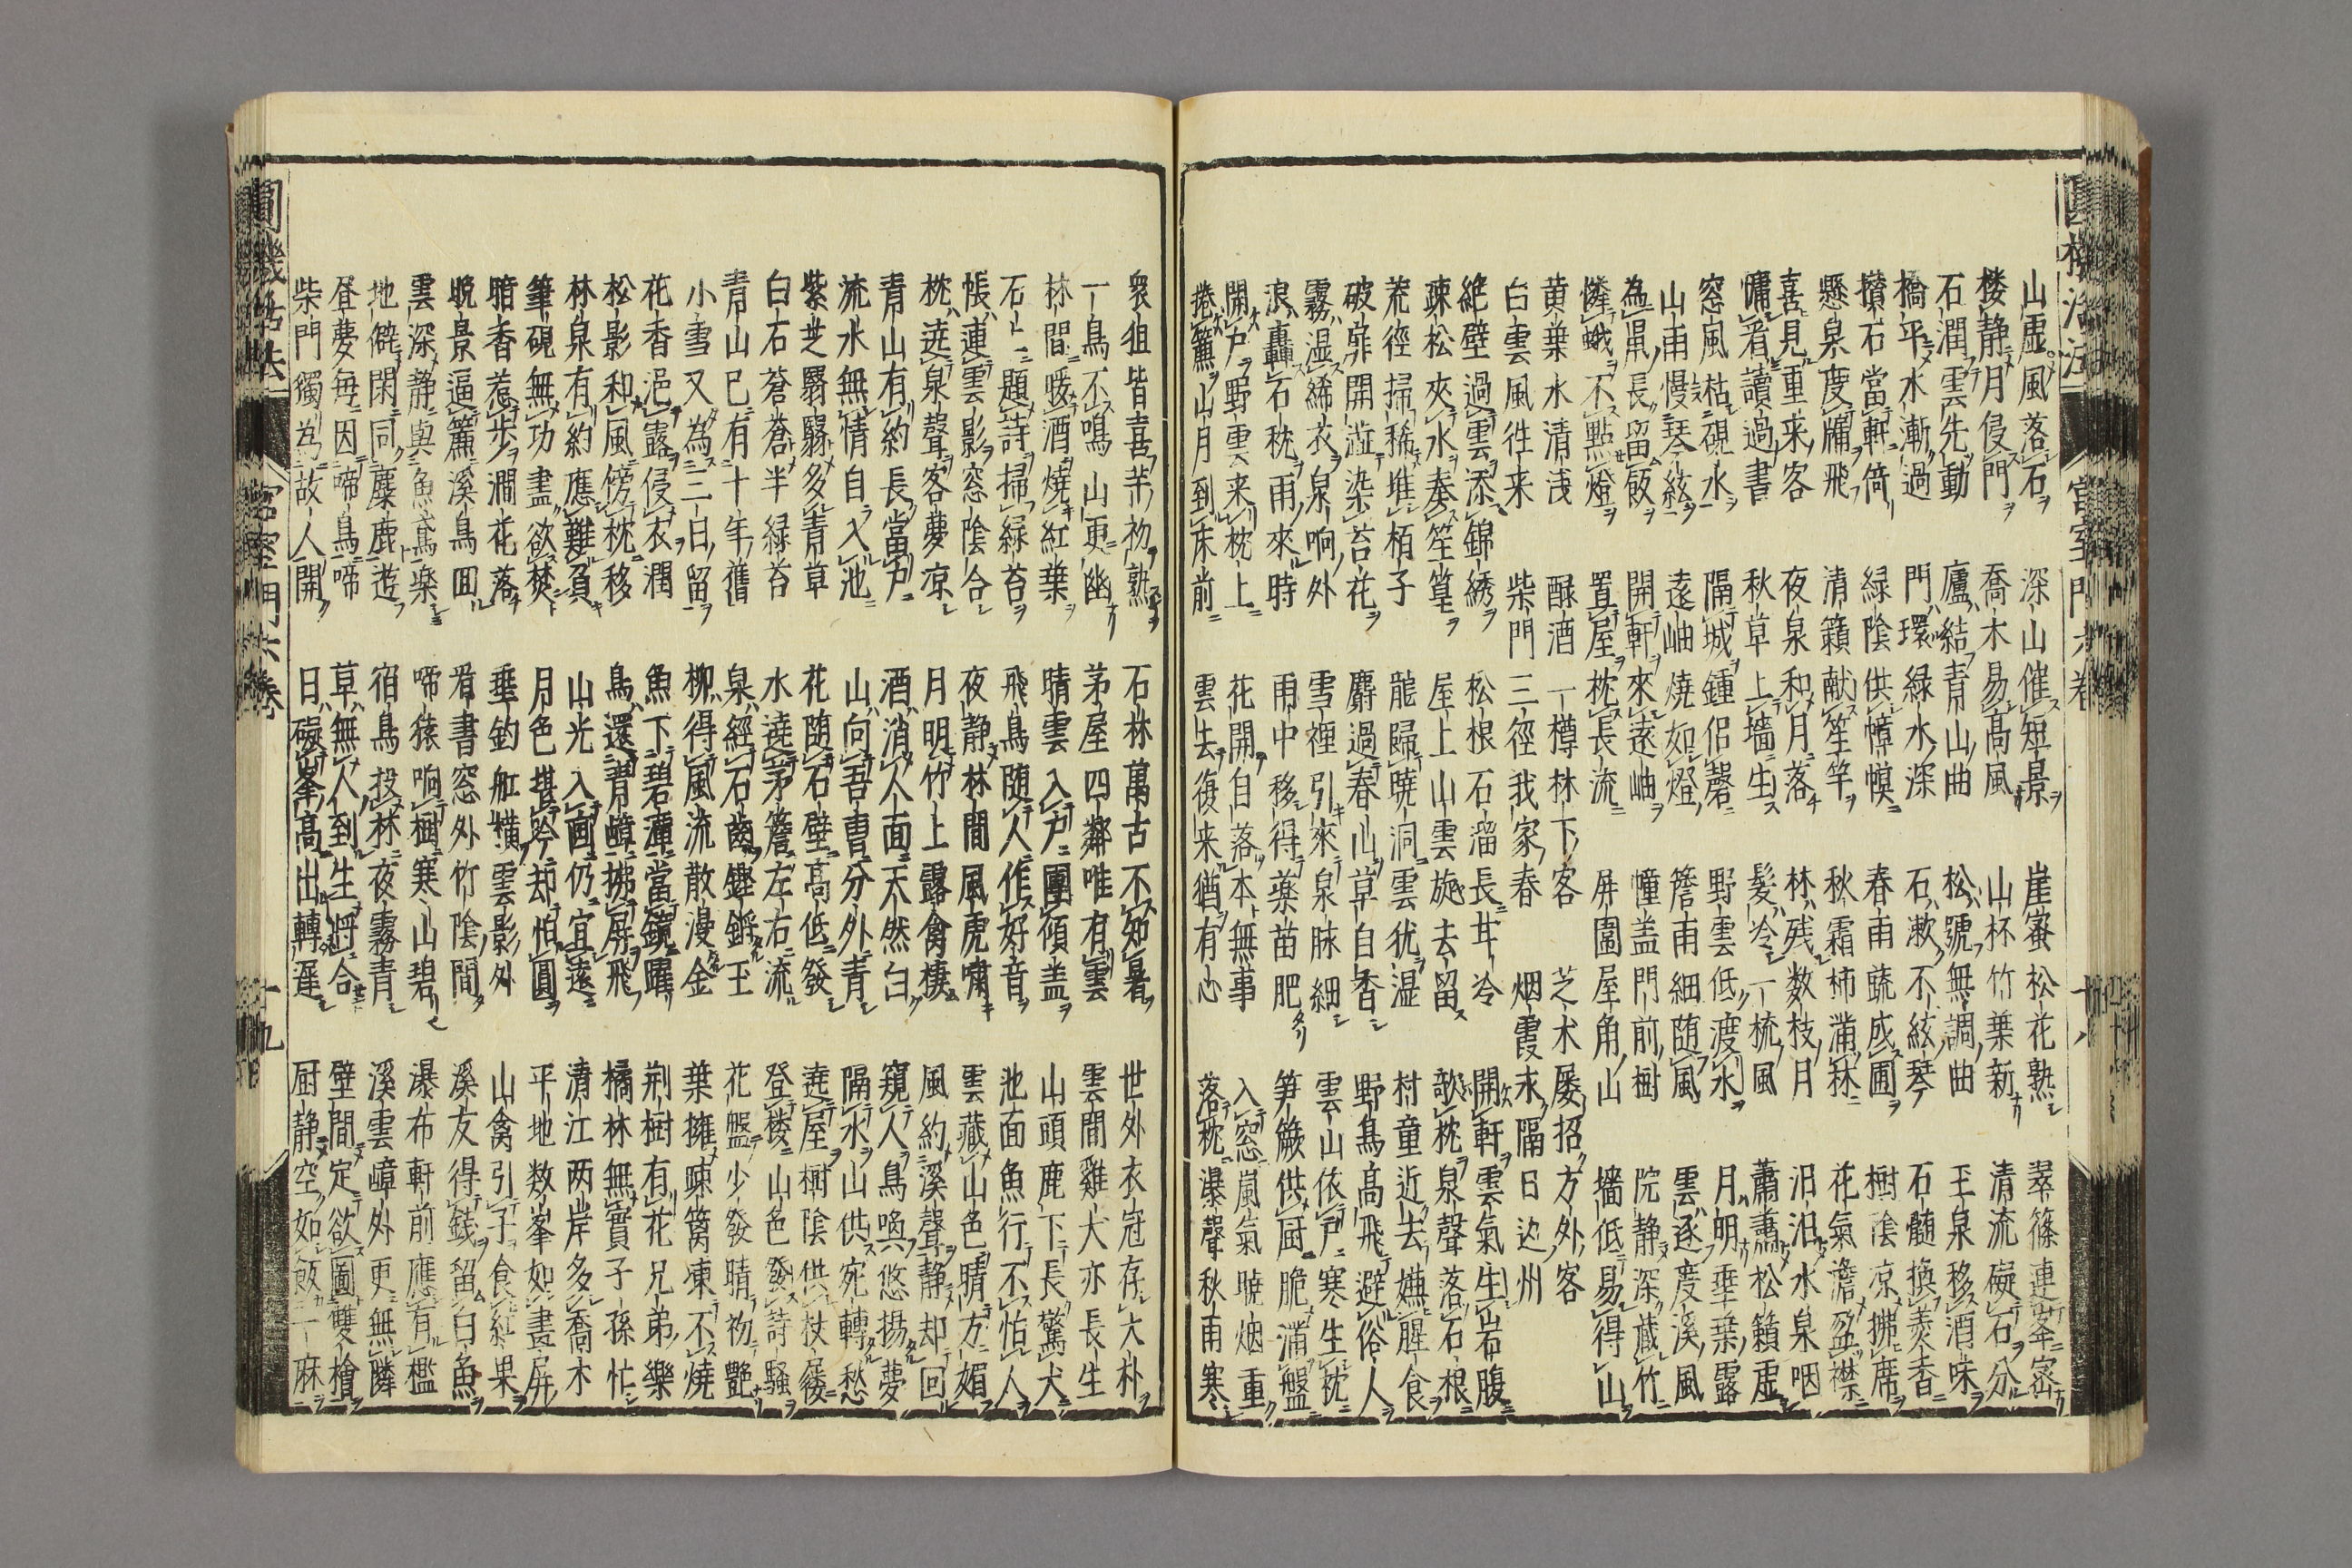 圓機活法 宮室門六卷 十八
山虚風落石 深山催短景 崖蜜松花熟 翠篠連峯密
楼静月侵門 喬木易高風 山杯竹葉新 清流礙石分
石潤雲先動 廬結青山曲 松號無調曲 玉泉移酒味
橋平水漸過 門環緑水深 石漱不絃琴 石髄換羮香
攅石當軒倚 緑陰供幛幙 春雨蔬成圃 樹陰凉拂席
懸泉度牖飛 清籟献笙竽 秋霜柿滿林 花氣澹盈襟
喜見重来客 夜泉和月落 林残数枝月 汨汨水泉咽
慵看讀過書 秋草上墻生 髪冷一梳風 蕭蕭松籟虚
窓風枯硯水 隔城鍾侶磬 野雲低渡水 月明垂葉露
山雨慢琴絃 遠岫燒如燈 簷雨細随風 雲逐度溪風
為鼠長留飯 開軒來遠岫 幢盖門前樹 院静深蔵竹
憐蛾不點燈 置屋枕長流 屏圍屋角山 墻低易得山
黄葉水清浅 醁酒一樽林下客 芝朮屡招方外客
白雲風徃来 柴門三徑我家春 烟霞永隔日边州
絶壁過雲添錦綉 松根石溜長茸冷 開軒雲氣生岩腹
疎松夾水奏笙篁 屋上山雲旋去留 欹枕泉聲落石根
荒徑掃稀堆栢子 龍歸曉洞雲犹湿 村童近去嫌腥食
破扉開澁染苔花 麝過春山草自香 野鳥高飛避俗人
霧湿絺衣泉响外 雪裡引來泉脉細 雲山依戸寒生枕
浪轟石枕雨來時 雨中移得薬苗肥 笋簸供厨脆滿盤
開戸野雲来枕上 花開自落本無事 入窓嵐氣曉烟重
捲簾山月到床前 雲去復来猶有心 落枕瀑聲秋雨寒
衆狙皆喜芧初熟 石林萬古不知暑 世外衣冠存大朴
一鳥不鳴山更幽 茅屋四鄰唯有雲 雲間雞犬亦長生
林間暖酒燒紅葉 晴雲入戸團傾盖 山頭鹿下長驚犬
石上題詩掃緑苔 飛鳥随人作好音 池面魚行不怕人
帳連雲影窓陰合 夜静林間風虎嘯 雲藏山色晴方媚
枕遶泉聲客夢凉 月明竹上露禽棲 風約溪聲静却回
青山有約長當戸 酒消人面天然白 窺人鳥喚悠揚夢
流水無情自入池 山向吾曹分外青 隔水山供宛轉愁
紫芝多青草 花随石壁高低發 遶屋樹陰供杖屨
白石蒼蒼半緑苔 水遶茅簷左右流 登楼山色發詩騒
青山已有十年舊 泉經石齒鏗鏘玉 花盤少發晴初艶
小雪又為三日留 柳得風流散漫金 葉擁疎篱凍不燒
花香浥露侵衣潤 魚下碧潭當鏡躍 荆樹有花兄弟樂
松影和風傍枕移 鳥還青嶂拂屏飛 橘林無實子孫忙
林泉有約應難負 山光入画仍宜遠 清江两岸多喬木
筆硯無功盡欲焚 月色堪吟却怕圓 平地数峯如畫屏
暗香惹歩澗花落 垂釣舡横雲影外 山禽引子食紅果
晩景逼簾溪鳥回 看書窓外竹陰間 溪友得錢留白魚
雲深静與魚鳶楽 啼猿响樹寒山碧 瀑布軒前應有檻
地僻閑同麋鹿遊 宿鳥投林夜霧青 溪雲嶂外更無隣
昼夢毎因啼鳥啼 草無人到生将合 壁間定欲圖雙檜
柴門獨為故人開 日礙峯高出轉遅 厨静空如飯一麻
圓機活法 宮室門六卷 十九